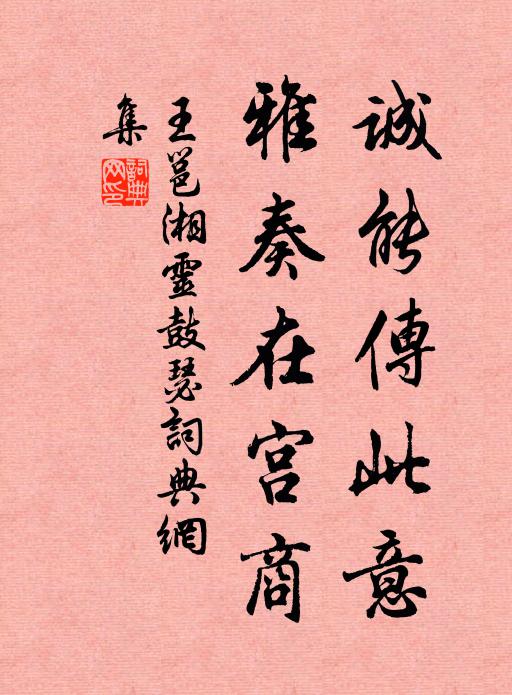 誠能傳此意
雅奏在宮商
王邕湘靈鼓瑟詞典網
集
詞典
网印